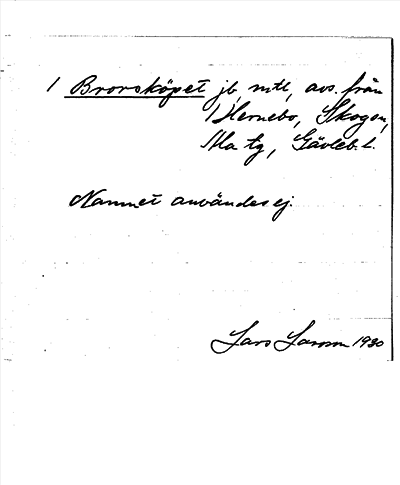 1 Brorsköpet jb, mtl, avs. från
1 Hernebo, Skogen,
Ma tg, Gävleb. l.
Namnet användes ej.
Lars Larsson 1930